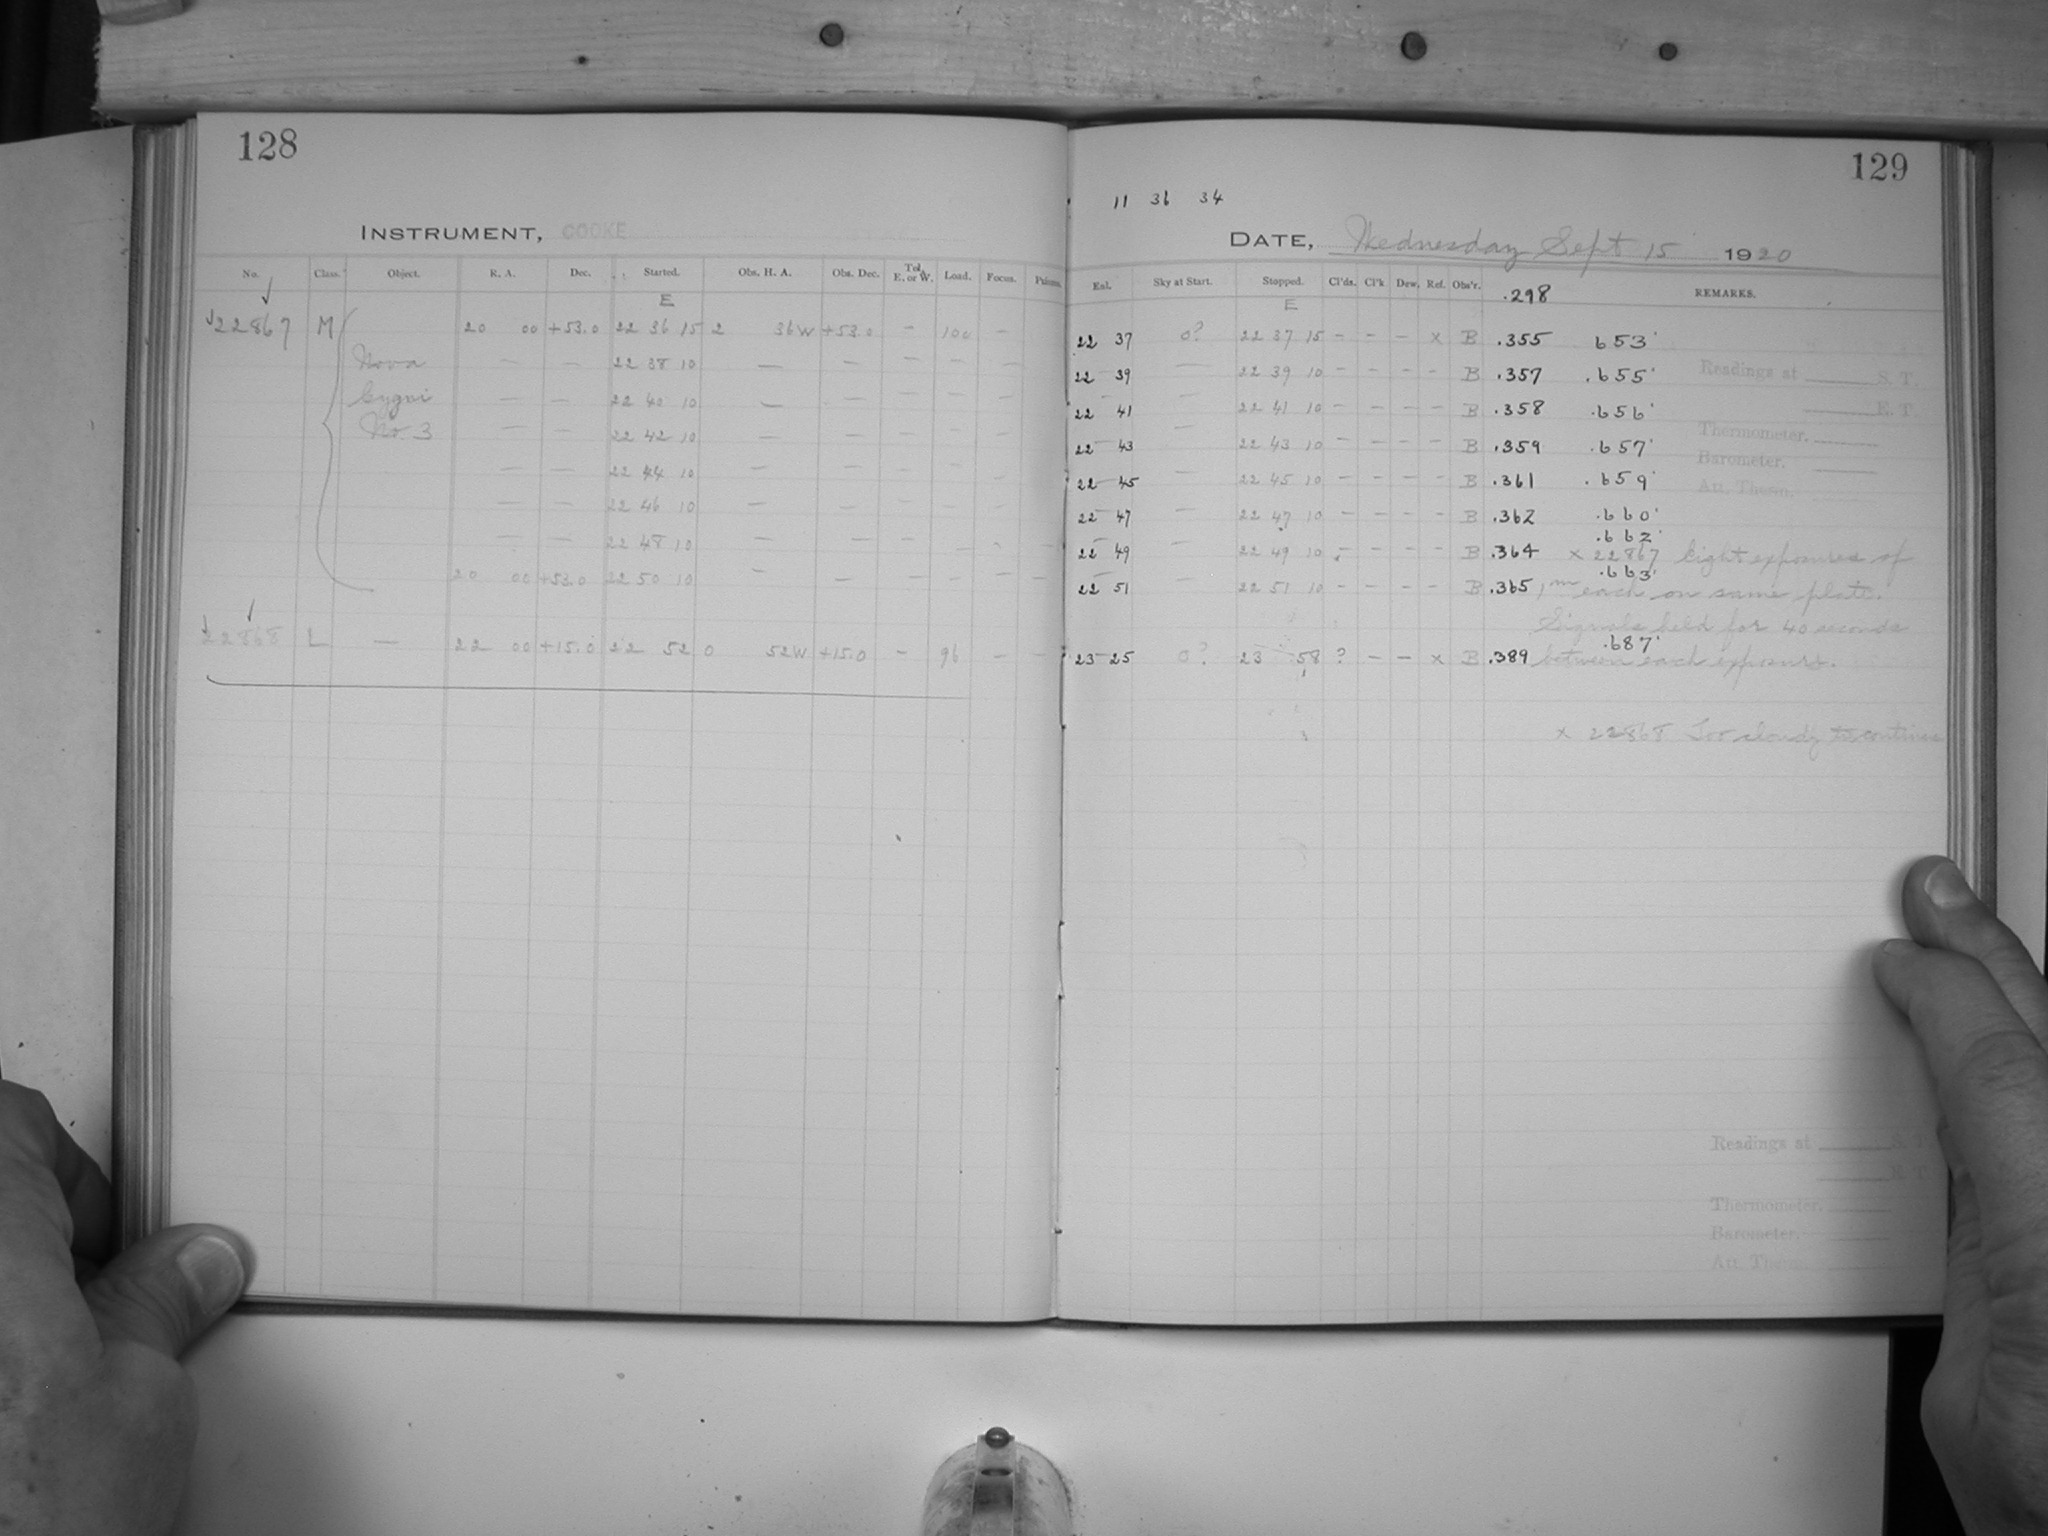 128
INSTRUMENT, COOKE
No. Class. Object. R. A. Dec. Started. Obs. H. A. Obs. Dec. Tel. E. or W. Load. Focus.
E
22867 M 20 00 +53.0 22 36 15 2 36W +53.0 – 100 –
Nova — — 22 38 10 — — — — —
Cygni — — 22 40 10 — — — — —
No. 3 — — 22 42 10 — — — — —
— — 22 44 10 — — — — —
— — 22 46 10 — — — — —
— — 22 48 10 — — — — —
20 00 +53.0 22 50 10 — — — — —
22868 L — 22 00 +15.0 22 52 0 52W +15.0 – 96 –
129
11 36 34
DATE, Wednesday Sept 15 1920
Sky at Start. Stopped. Cl'ds. Cl'k Dew. Ref. Obs'r. .298 REMARKS.
E
22 37 0? 22 37 15 – – – x B .355 653
22 39 — 22 39 10 – – – – B .357 .655
22 41 — 22 41 10 – – – – B .358 .656
22 43 — 22 43 10 – – – – B .359 .657
22 45 — 22 45 10 – – – – B .361 .659
22 47 — 22 47 10 – – – – B .362 .660
.662
22 49 — 22 49 10 – – – – B .364 x 22867 Eight exposures of
.663
22 51 — 22 51 10 – – – – B .365 1m each on same plate.
Signals held for 40 seconds
.687
23 25 0? 23 58 ? – – x B .389 between each exposure.
x 22868 Too cloudy to continue
Readings at S. T.
E. T.
Thermometer.
Barometer.
Att. Therm.
Readings at S. T.
E. T.
Thermometer.
Barometer.
Att. Therm.